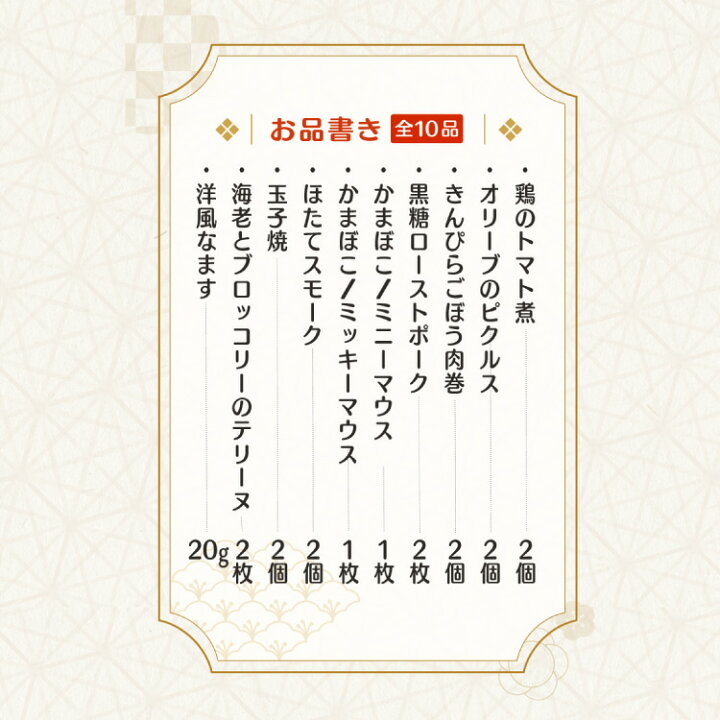 お品書き 全10品
・鶏のトマト煮 2個
・オリーブのピクルス 2個
・きんぴらごぼう肉巻 2個
・黒糖ローストポーク 2枚
・かまぼこ/ミニーマウス 1枚
・かまぼこ/ミッキーマウス 1枚
・ほたてスモーク 2個
・玉子焼 2個
・海老とブロッコリーのテリーヌ 2枚
・洋風なます 20g